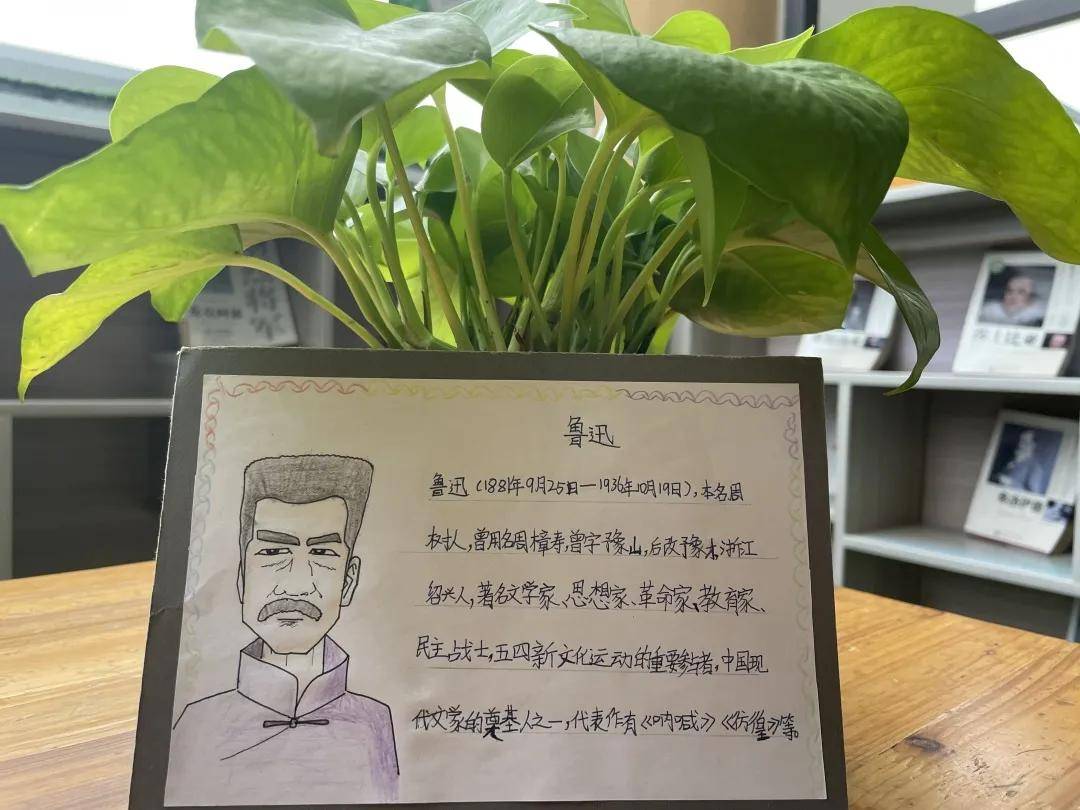 鲁迅
鲁迅（1881年9月25日—1936年10月19日），本名周
树人，曾用名周樟寿，曾字豫山，后改豫才，浙江
绍兴人，著名文学家、思想家、革命家、教育家、
民主战士，五四新文化运动的重要参与者，中国现
代文学的奠基人之一，代表作有《呐喊》《彷徨》等。
莎士比亚